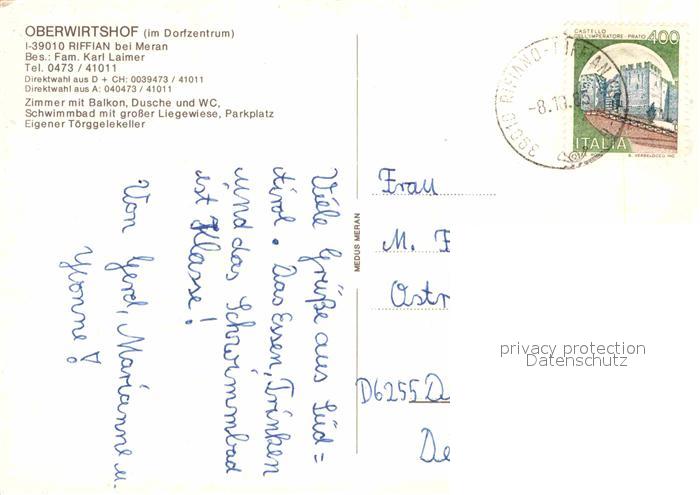 OBERWIRTSHOF (im Dorfzentrum)
I-39010 RIFFIAN bei Meran
Bes.: Fam. Karl Laimer
Tel. 0473 / 41011
Direktwahl aus D + CH: 0039473 / 41011
Direktwahl aus A: 040473 / 41011
Zimmer mit Balkon, Dusche und WC,
Schwimmbad mit großer Liegewiese, Parkplatz
Eigener Törggelekeller
Viele Grüße aus Süd=
tirol. Das Essen, Trinken
und das Schwimmbad
ist Klasse!
Von Gerd, Marianne u.
Yvonne!
MEDUS MERAN
CASTELLO
DELL'IMPERATORE - PRATO
400
ITALIA
39010 RIFIANO - RIFFIAN
-8.10.
Frau
M. F
Ostr
D6255 D
De
privacy protection
Datenschutz